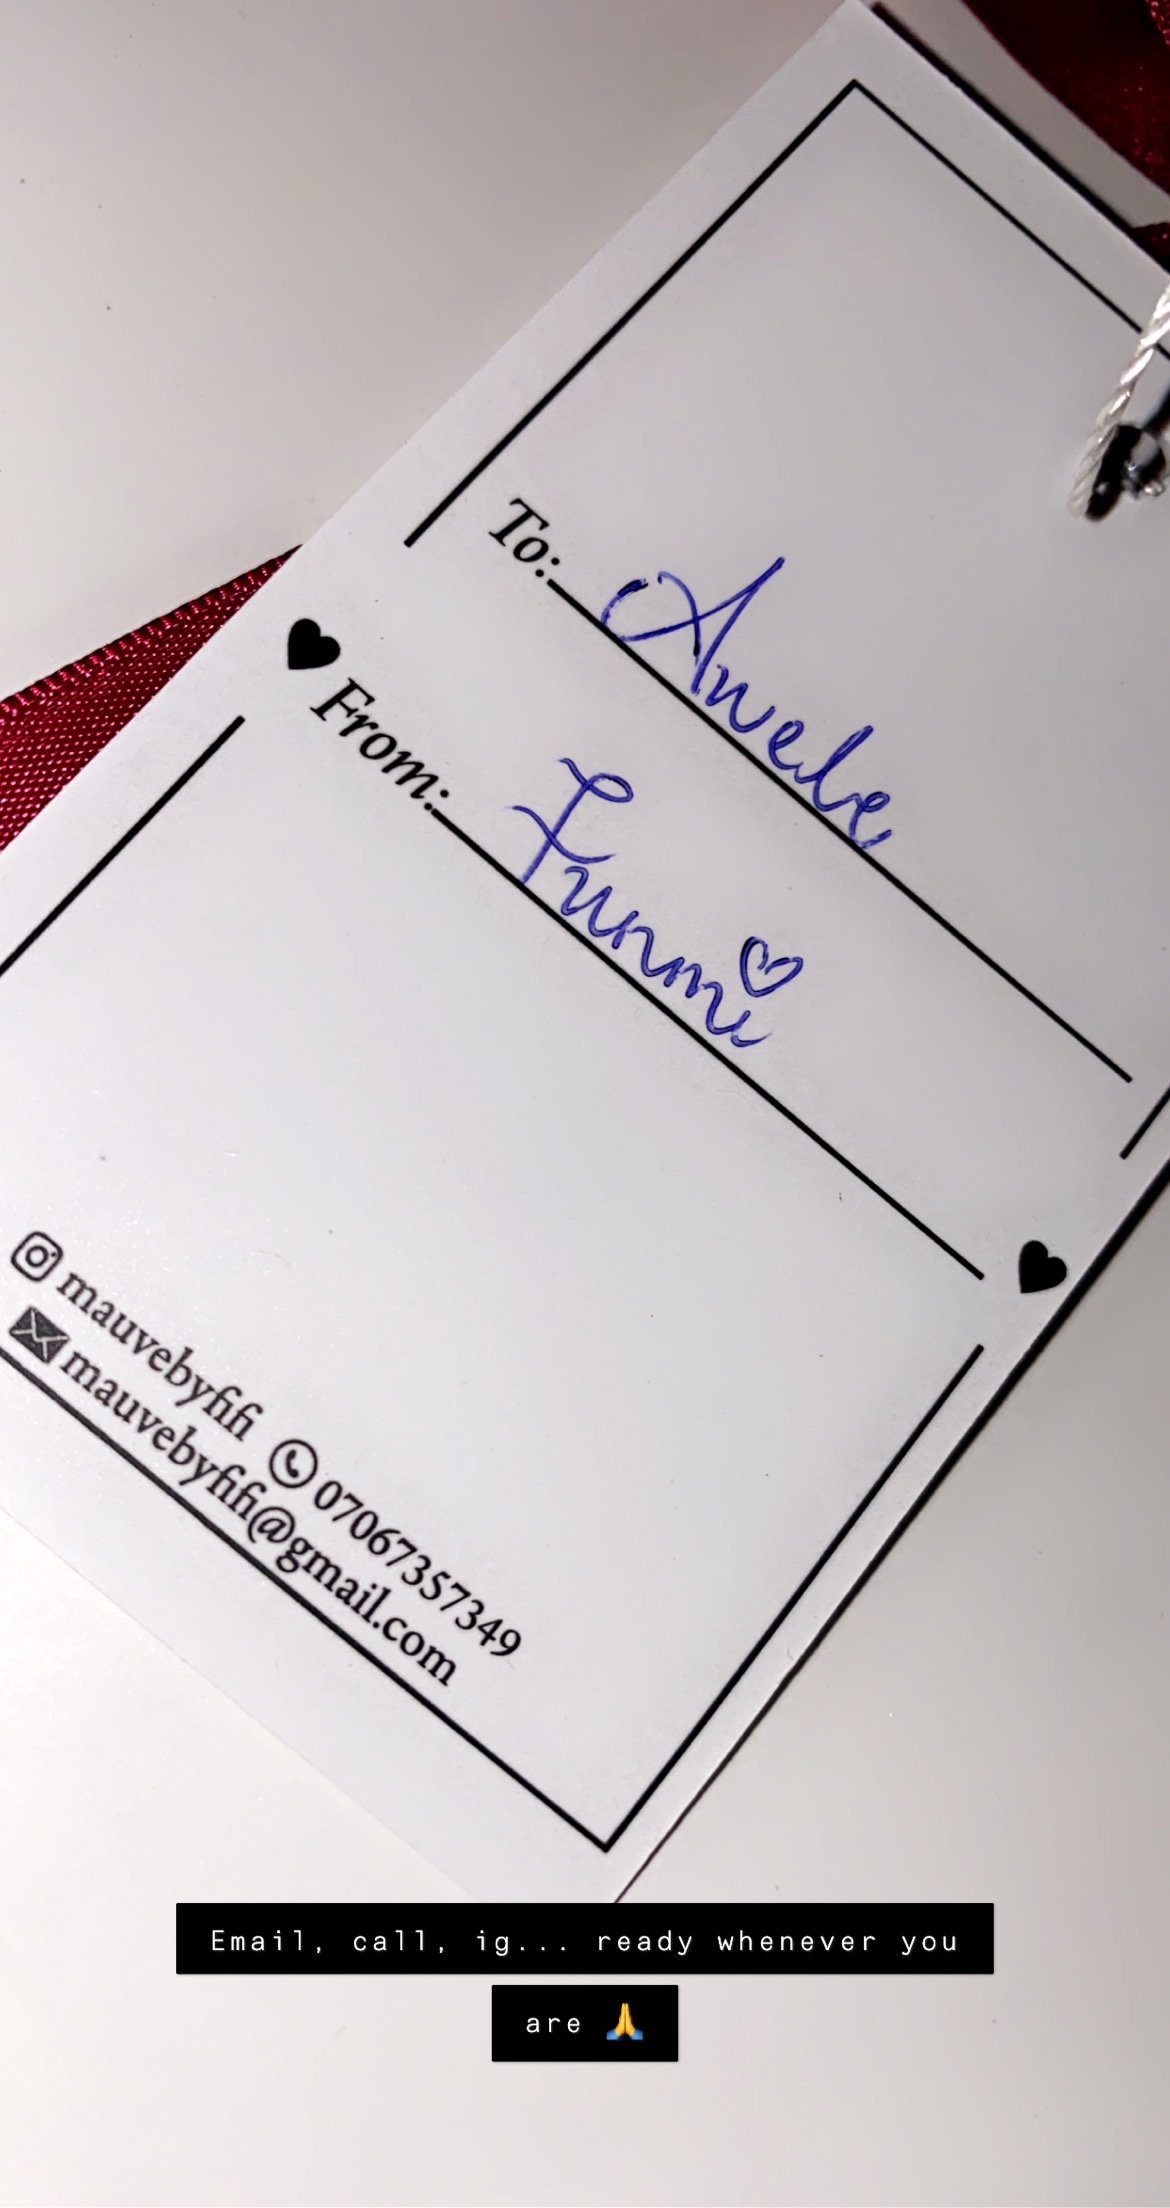 To: Awele
From: Funmi
mauvebyfifi 07067357349
mauvebyfifi@gmail.com
Email, call, ig... ready whenever you
are 🙏